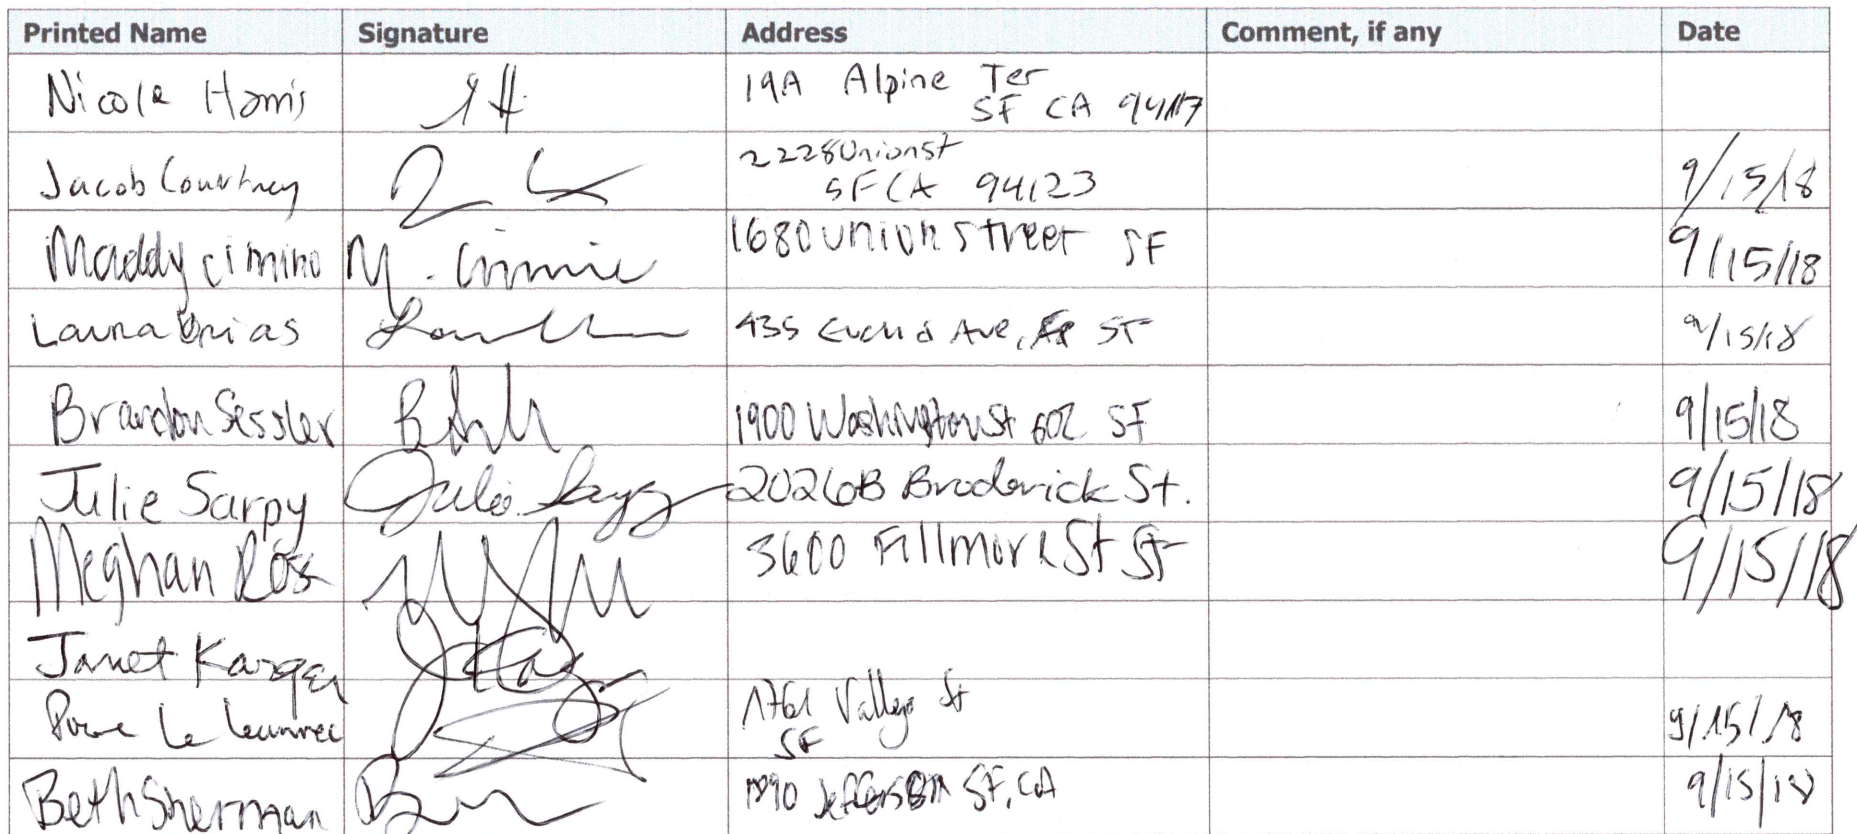 Printed Name Signature Address Comment, if any Date
Nicole Harris 19A Alpine Ter
SF CA 94117
Jacob Courtney 2228 Union St
SF CA 94123 9/15/18
Maddy Cimino M. Cimino 1680 Union Street SF 9/15/18
Laura 435 Euclid Ave, SF 9/15/18
Brandon Sessler 1900 Washington St 602 SF 9/15/18
Julie Sarpy Julie Sarpy 2026B Broderick St. 9/15/18
Meghan Ross 3600 Fillmore St SF 9/15/18
Janet Karger
Le 1761 Vallejo St
SF 9/15/18
Beth Sherman 1890 Jefferson SF, CA 9/15/18